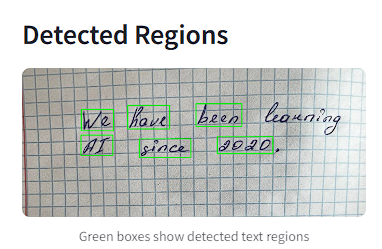 Detected Regions
We have been learning
AI since 2020.
Green boxes show detected text regions